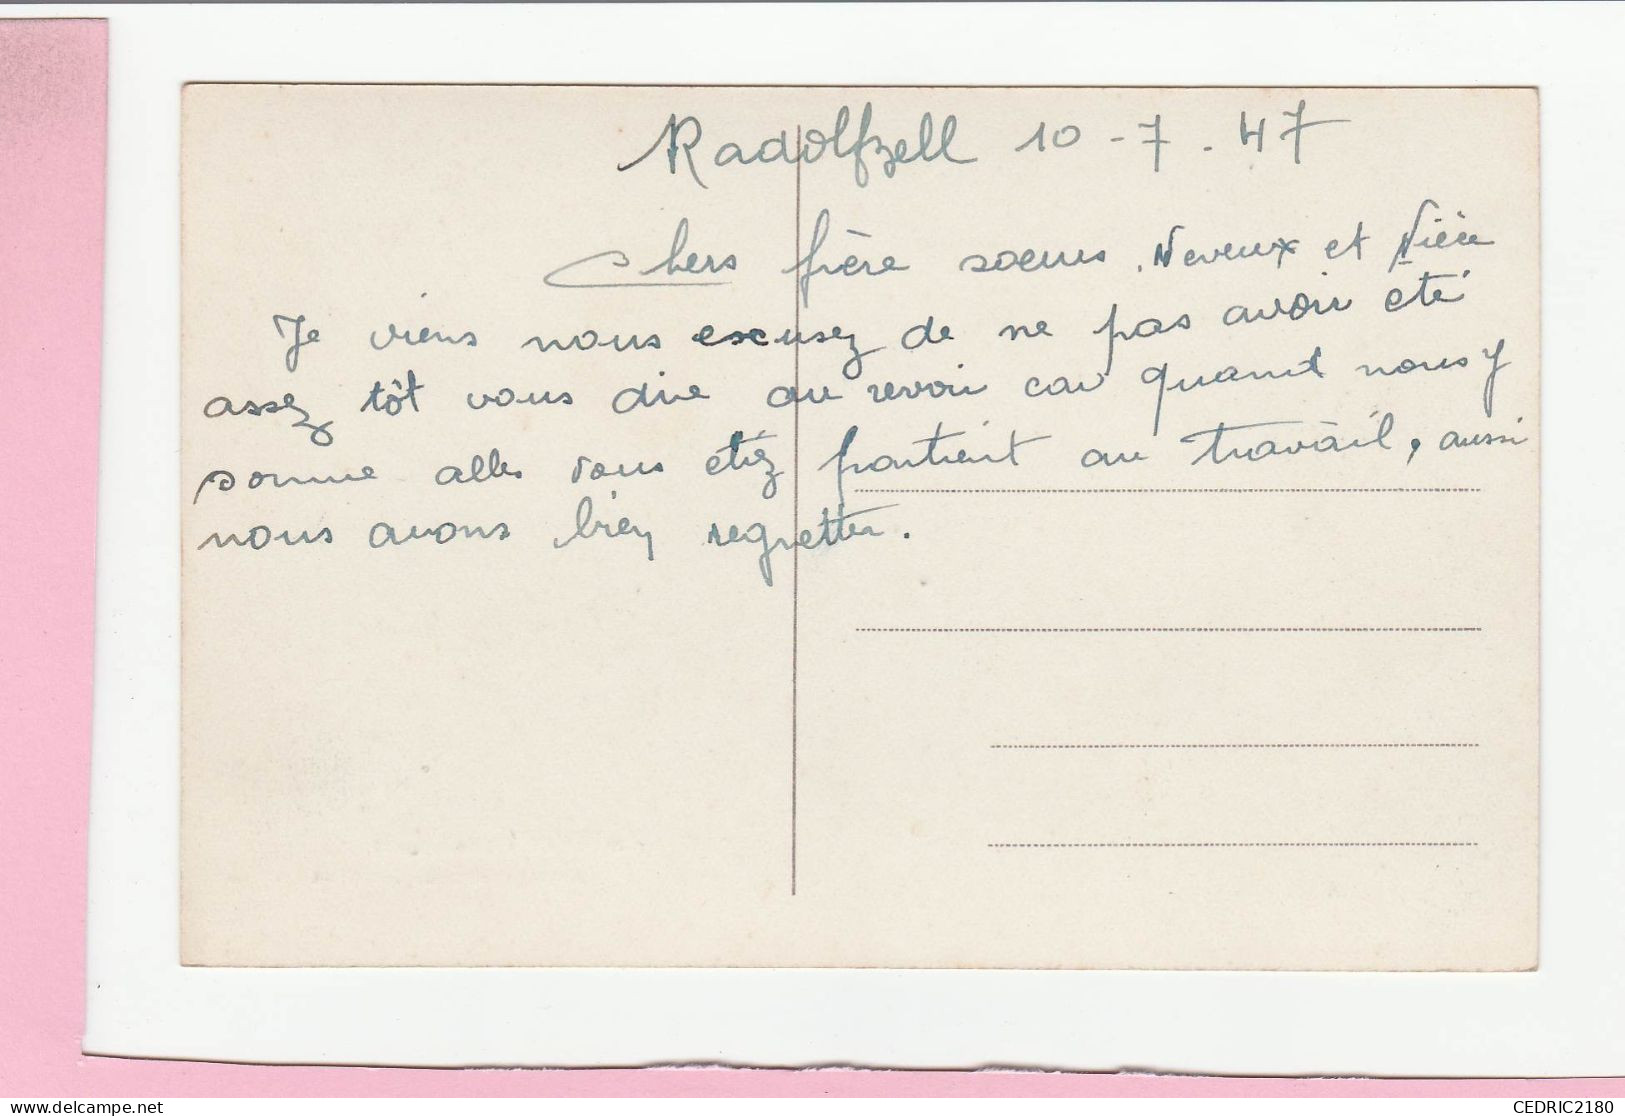 Radolfzell 10-7.47
Chers frère soeurs, Neveux et Nièce
Je viens nous excusez de ne pas avoir eté
assez tôt vous dire au revoir car quant nous y
somme alles vous etiez partient au travail, aussi
nous avons bien regretter.
CEDRIC2180